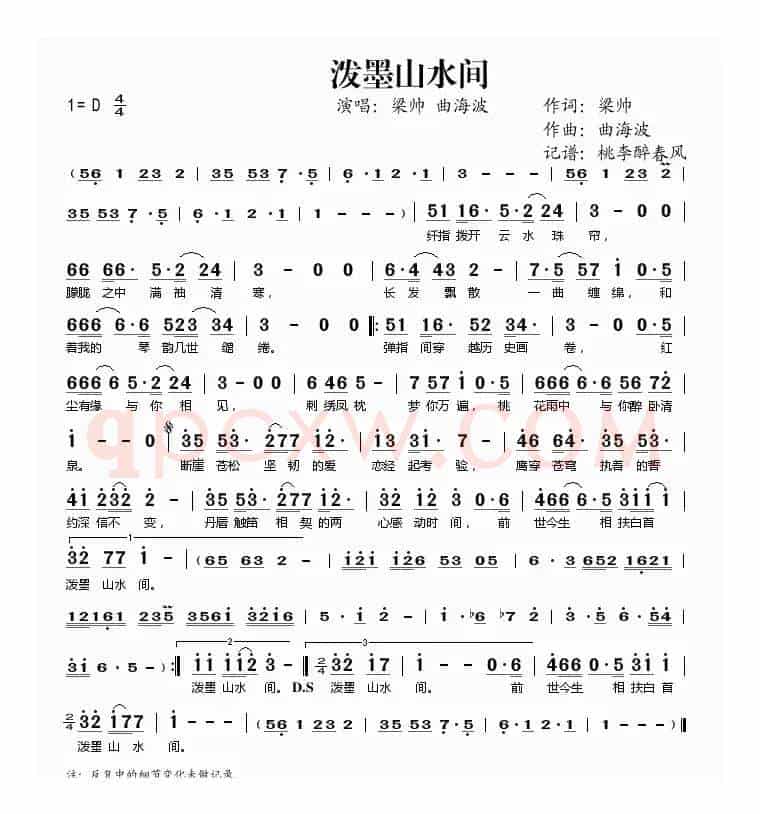 泼墨山水间
1=D 4/4 演唱：梁帅 曲海波 作词：梁帅
作曲：曲海波
记谱：桃李醉春风
(56 1 23 2 | 35 53 7·5 | 6·12·1 | 3 - - - | 56 1 23 2
35 53 7·5 | 6·12·1 | 1 - - -) | 51 16· 5·2 24 | 3 - 0 0 |
纤指 拨开 云 水 珠 帘，
66 66· 5·2 24 | 3 - 0 0 | 6·4 43 2 | 7·5 57 1 0·5 |
朦胧 之中 满 袖 清 寒， 长 发 飘散 一 曲 缠 绵，和
666 6·6 523 34 | 3 - 0 0 ‖: 51 16· 52 34· | 3 - 0·5 |
着我的 琴 韵几世 缱 绻。 弹指 间穿 越历 史画 卷， 红
666 6 5·2 24 | 3 - 0 | 6 46 5 | 7 57 1 0·5 | 666 6 56 72 |
尘有缘 与 你 相 见， 刺 绣凤 枕 梦 你万 遍，桃 花雨中 与 你醉 卧清
1 - - 0 | 35 53· 277 12· | 13 31· 7 - | 66 64· 35 53· |
泉。 断崖 苍松 坚 韧 的爱 恋经 起考 验， 鹰穿 苍穹 执着 的誓
41 232 2 - | 35 53· 277 12· | 32 12 3 0·6 | 466 6 3 31 1 |
约深 信不 变， 丹唇 触笛 相 契 的两 心感 动时 间，前 世今生 相 扶白首
1
32 77 1 - | (65 63 2 - | 121 126 53 05 | 6· 3 3652 1621 |
泼墨 山水 间。
12161 235 3561 32316 | 5·1 2 - | 1·b6 b7 2 | 3· 1 6·54 |
2 3
31 6·5 -) :‖ 11 112 3 - ‖ 2/4 32 17 | 1 - - 0·6 | 466 6 3 31 1 |
泼墨 山水 间。D.S 泼墨 山水 间。 前 世今生 相 扶白 首
2/4 32 177 | 1 - - - | (56 1 23 2 | 35 53 7·5 | 6·12·1 | 1 - - -)‖
泼墨 山 水 间。
注：反复中的细节变化未做记录
qpcxw.com